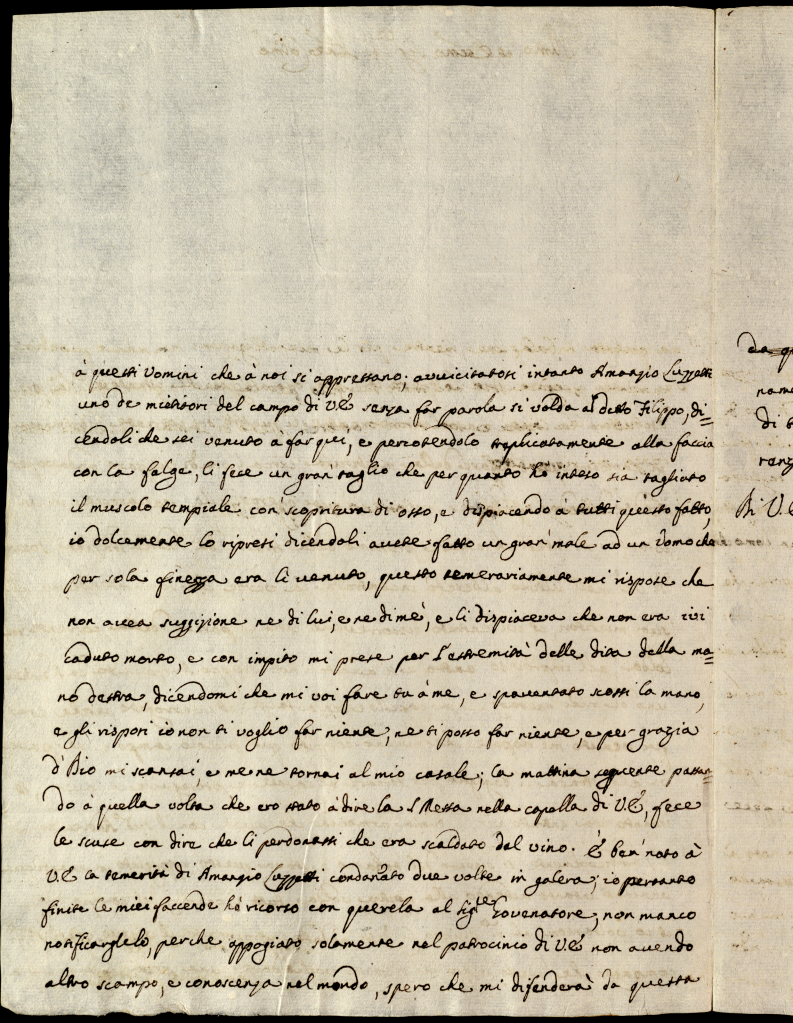 à questi Vomini che à noi si appressano; avvicinatosi intanto Amanzio Luzzetti
uno de mietitori del campo di V.E. senza far parola si volda al detto Filippo, di=
cendoli che sei venuto à far qui, e percotendolo replicatamente alla faccia
con la falge, li fece un gran' taglio che per quanto hò inteso sia tagliato
il muscolo tempiale con' scopritura di osso, e dispiacendo à tutti questo fatto,
io dolcemente lo ripresi dicendoli avete fatto un gran' male ad un Vomo che
per sola finezza era li venuto, questo temerariamente mi rispose che
non avea suggizione ne di lui, e ne di mè, e li dispiaceva che non era ivi
caduto morto, e con impito mi prese per l'estremità delle dita della ma=
no destra, dicendomi che mi voi fare tu à me, e spaventato scossi la mano,
e gli risposi io non ti voglio far niente, ne ti posso far niente, e per grazia
d'Dio mi scansai, e me ne tornai al mio casale; la mattina seguente passan=
do à quella volta che ero stato à dire la S Messa nella capella di V.E, fece
le scuse con dire che li perdonassi che era scaldato dal vino. È ben' noto à
V.E la temerità di Amanzio Luzzetti condan'ato due volte in galera; io pertanto
finite le miei faccende hò ricorso con querela al Sig.re Governatore, non manco
notificarglelo, perche appogiato solamente nel patrocinio di V.E non avendo
altro scampo, e conoscenza nel mondo, spero che mi difenderà da questa
name
di
Di V.E